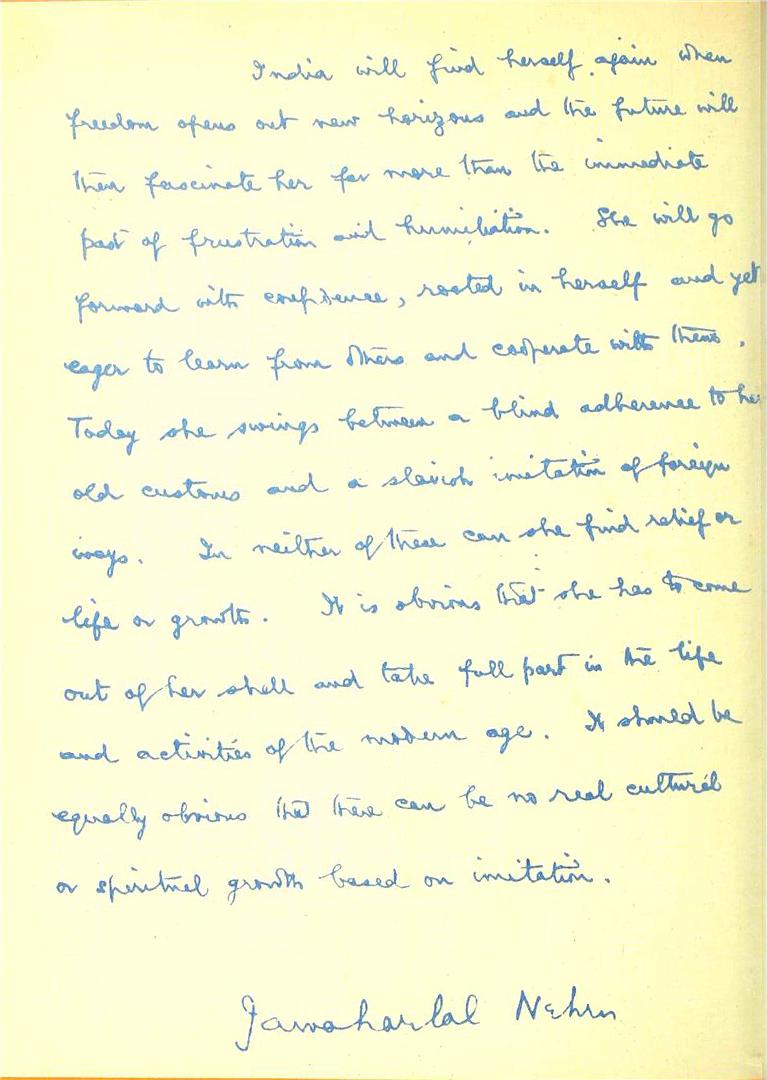 India will find herself again when
freedom opens out new horizons and the future will
then fascinate her far more than the immediate
past of frustration and humiliation. She will go
forward with confidence, rooted in herself and yet
eager to learn from others and cooperate with them.
Today she swings between a blind adherence to her
old customs and a slavish imitation of foreign
ways. In neither of these can she find relief or
life or growth. It is obvious that she has to come
out of her shell and take full part in the life
and activities of the modern age. It should be
equally obvious that there can be no real cultural
or spiritual growth based on imitation.
Jawaharlal Nehru